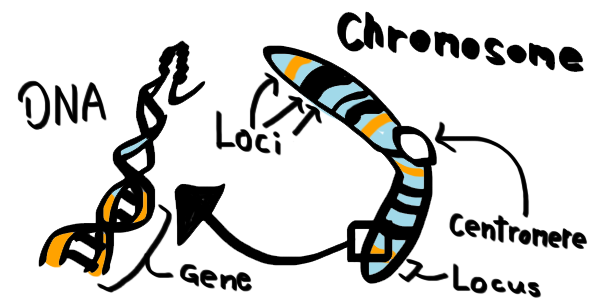 Chromosome
DNA
Loci
Centromere
Gene
Locus